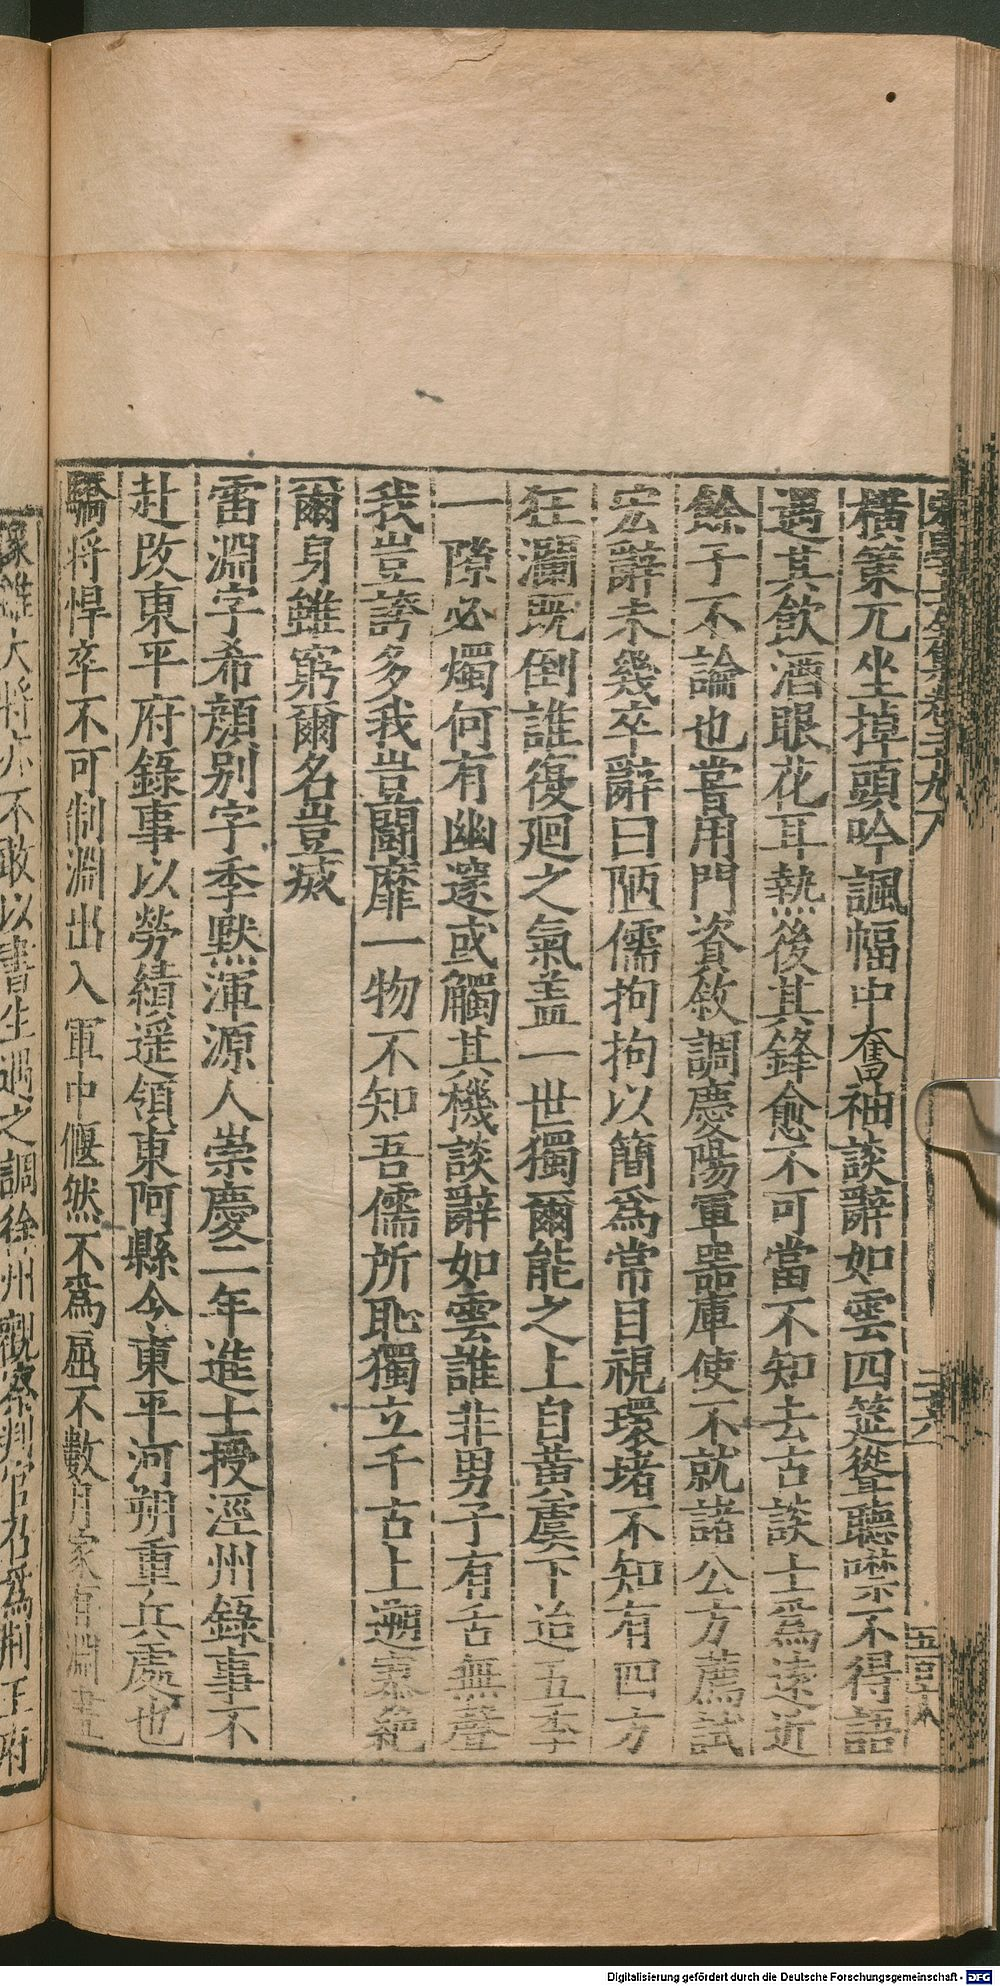 橫策兀坐掉頭吟諷幅巾奮袖談辭如雲四筵聳聽噤不得語
遇其飲酒眼花耳熱後其鋒愈不可當不知去古談士爲遠近
餘子不論也嘗用門資敘調慶陽軍器庫使不就諸公方薦試
宏辭未幾卒辭曰陋儒拘拘以簡爲常目視環堵不知有四方
狂瀾既倒誰復廻之氣蓋一世獨爾能之上自黃虞下迨五季
一隙必燭何有幽邃或觸其機談辭如雲誰非男子有舌無聲
我豈誇多我豈鬭靡一物不知吾儒所恥獨立千古上遡寡絕
爾身雖窮爾名豈威
雷淵字希顏別字季默渾源人崇慶二年進士授涇州錄事不
赴改東平府錄事以勞績遥領東阿縣令東平河朔重兵處也
驕將悍卒不可制淵出入軍中偃然不爲屈不數月家有淵畫
像雖大將亦不敢以書生遇之調徐州觀察判官召爲荆王府
Digitalisierung gefördert durch die Deutsche Forschungsgemeinschaft - DFG